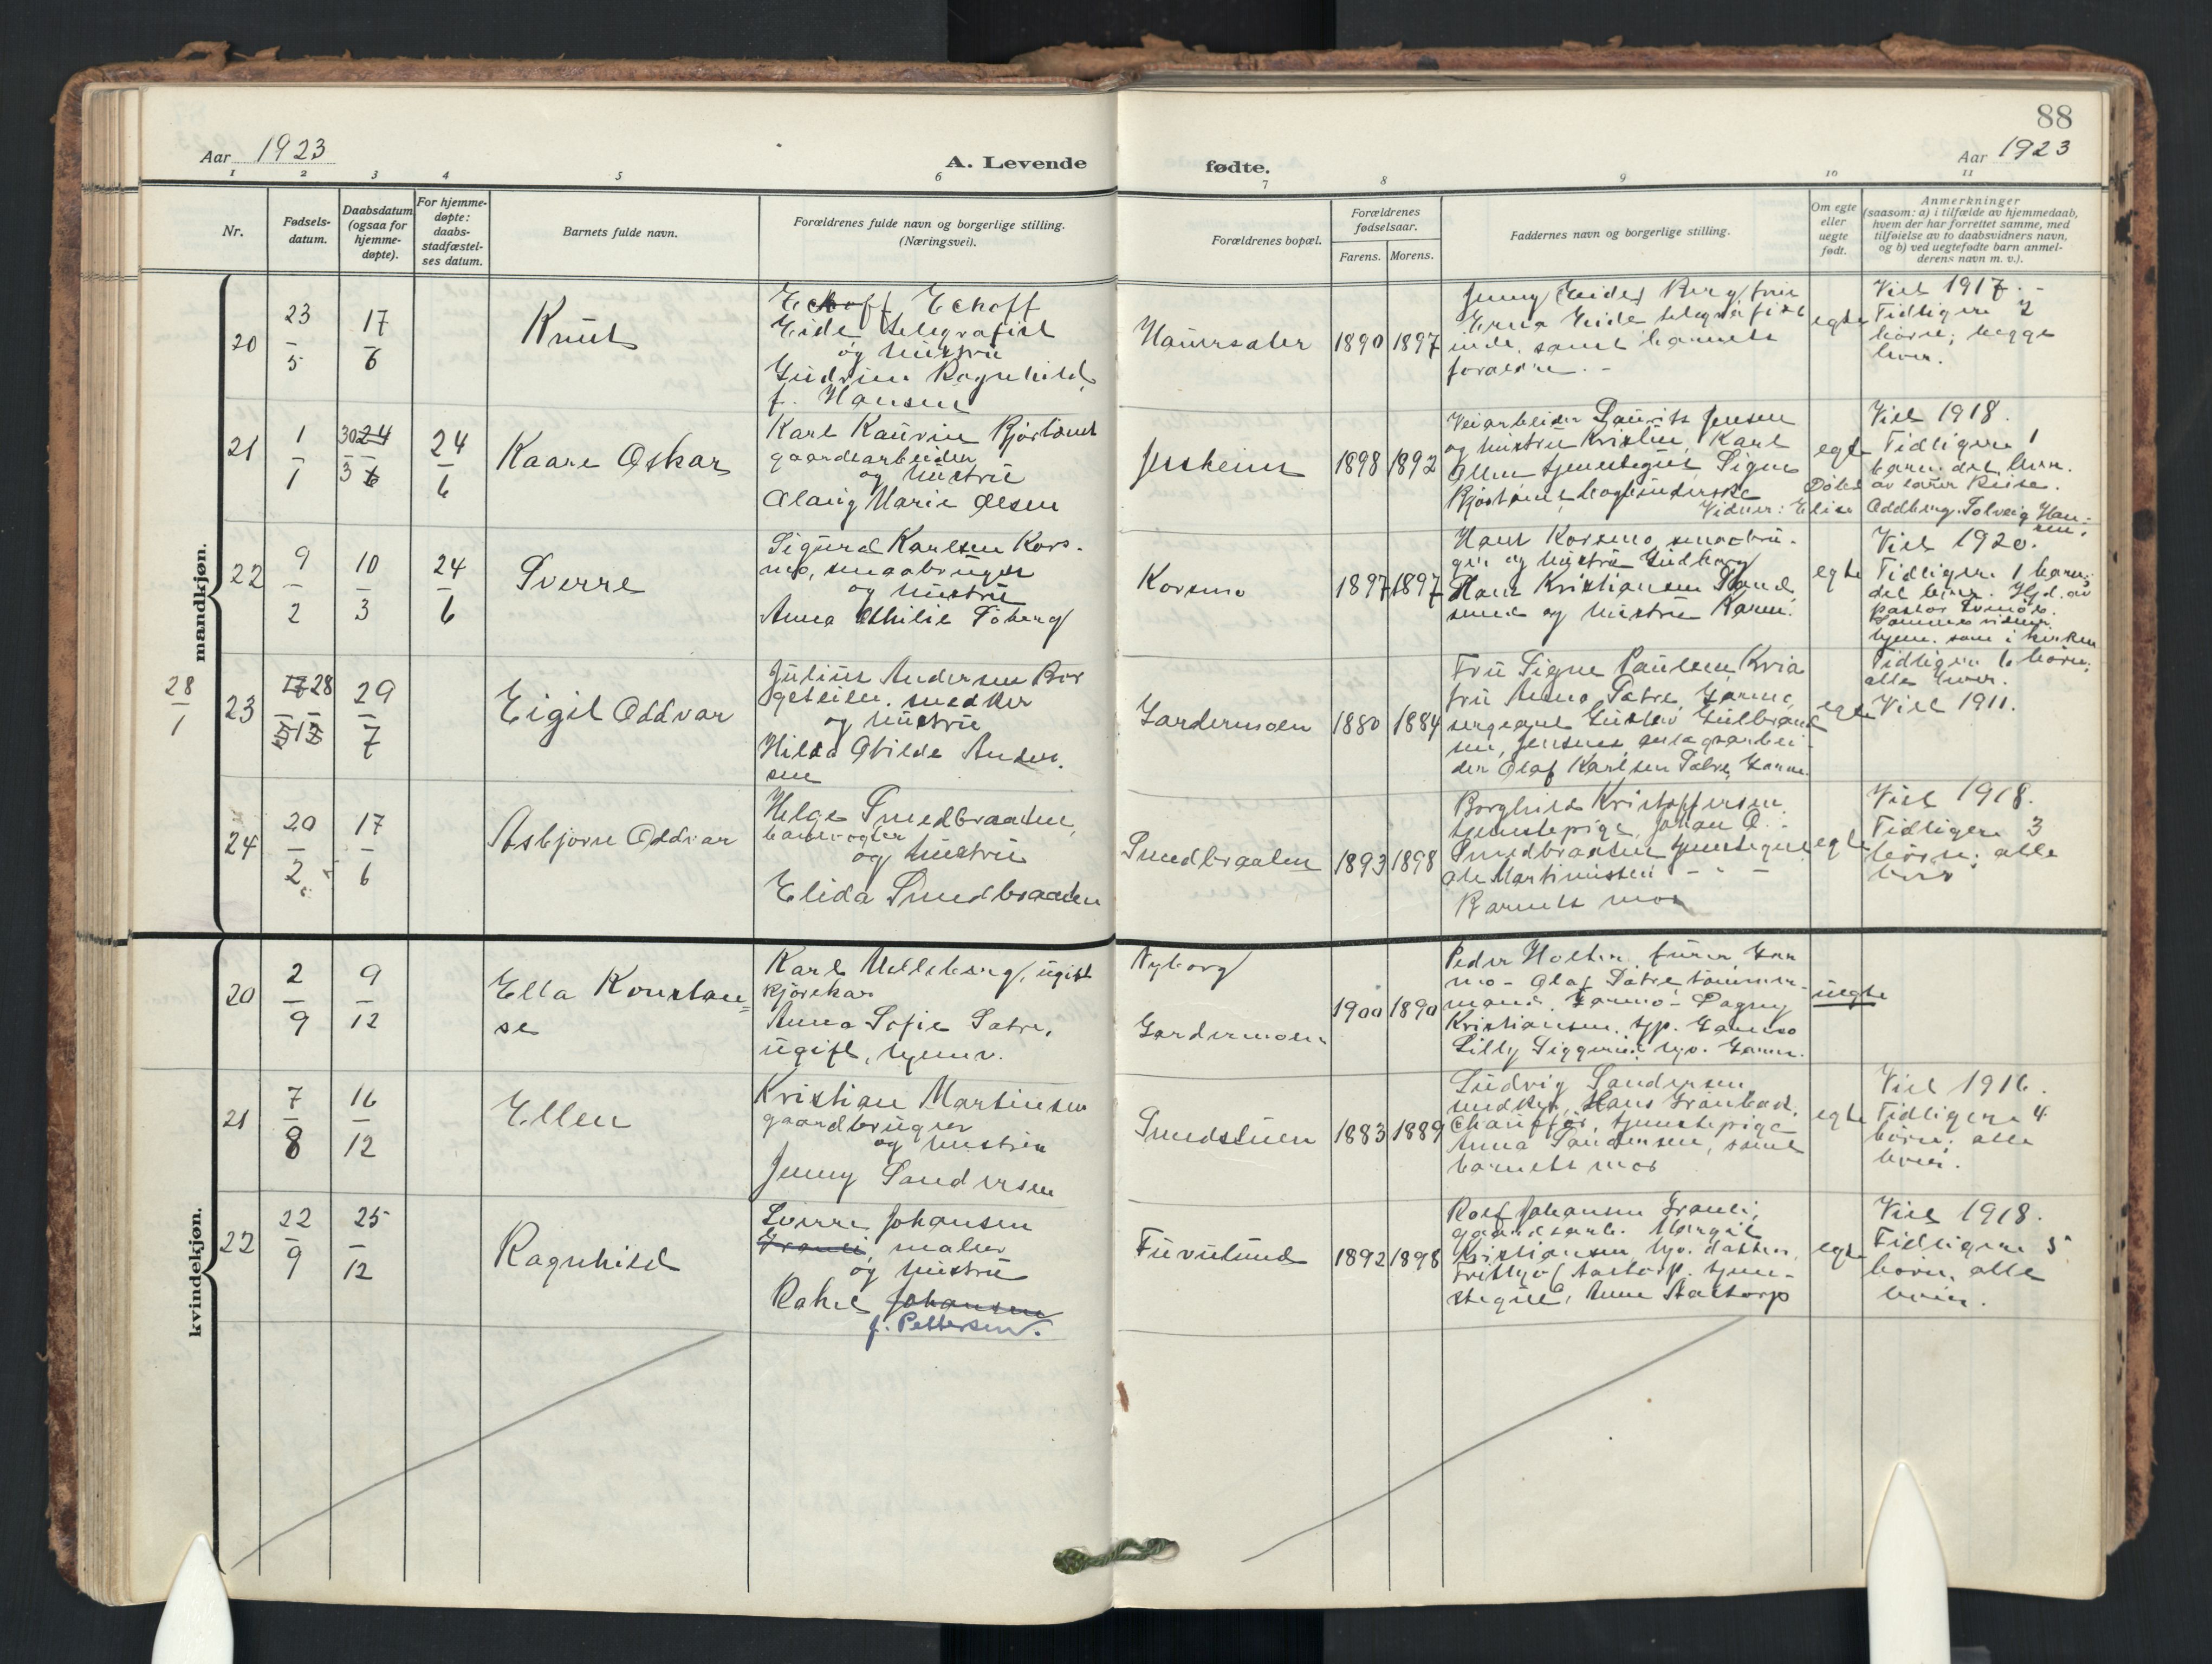 88
Aar 1923
A. Levende
fødte.
Aar 1923
1 2 3 4 5 6 7 8 9 10 11
Nr.
Fødsels-
datum.
Daabsdatum
(ogsaa for
hjemme-
døpte).
For hjemme-
døpte:
daabs-
stadfæstel-
ses datum.
Barnets fulde navn.
Forældrenes fulde navn og borgerlige stilling.
(Næringsvei).
Forældrenes bopæl.
Forældrenes
fødselsaar.
Farens. Morens.
Faddernes navn og borgerlige stilling.
Om egte
eller
uegte
født.
Anmerkninger
(saasom: a) i tilfælde av hjemmedaab,
hvem der har forrettet samme, med
tilføielse av to daabsvidners navn,
og b) ved uegtefødte barn anmel-
derens navn m. v.).
mandkjøn.
20
23
5
17
6
Knut
Echoff Echoff
Eide telegrafist
og hustru
Gudrun Ragnhild
f. Hansen
1890 1897
Jenny (Eide) Berg, frue
Erna Eide telegrafist
inde, samt barnets
forældre. -
egte
Viet 1917. -
Tidligere 2
børn; begge
lever.
21
1
1
30 24
3 6
24
6
Kaare Oskar
Karl Kaurin
gaardsarbeider
og hustru
Marie Olsen
Jessheim
1898 1892
Veiarbeider Laurits Jensen
og hustru Kristine, Karl
Olsen tjenestegut Signe
egte
Viet 1918.
Tidligere 1
barn; det lever.
Døbt av lærer
Vidner: Elise Oddberg. Solveig Hansen.
22
9
2
10
3
24
6
Sverre
Sigurd Karlsen Kors-
mo, smaabruger
og hustru
Anna Othilie
Korsmo
1897 1897
Hans Korsmo, smaabru-
ger og hustru
Hans Kristiansen
og hustru Karen.
egte
Viet 1920.
Tidligere 1 barn;
det lever. Hjd. av
pastor
Samme vidner
hjem. som i kirken
28
1
23
17 28
5 12
29
7
Eigil Oddvar
Julius Andersen
snedker
og hustru
Hilda Ander-
sen
Gardermoen
1880 1884
Fru Signe Paulsen, Kvia
fru Anna Sætre, Garmo,
sergeant Gustav Gulbrand
sen, Jensnes, anlægsarbei-
der Olaf Karlsen Sætre, Garmo.
egte
Tidligere 6 børn;
alle lever.
Viet 1911.
24
20
2
17
6
Asbjørn Oddvar
Helge Smedbraaten,
banevogter
og hustru
Elida Smedbraaten
Smedbraaten
1893 1898
Borghild Kristoffersen
tjenestepige, Johan O.
Smedbraaten tjenestegut
Ole Martinussen - " -
Barnets mor
egte
Viet 1918.
Tidligere 3
børn; alle
lever
kvindekjøn.
20
2
9
9
12
Ella Konstan=
se
Karl Melleberg, ugift
kjørekar
Anna Sofie Sætre,
ugift, hjemv.
Nyborg
Gardermoen
1900 1890
Peder Holter, furer Gar
mo - Olaf Sætre, tømmer-
mand. Garmo - Dagny
Kristiansen. tjp. Garmo
Lilly hjv. Garmo.
uegte
21
7
8
16
12
Ellen
Kristian Martinsen
gaardbruger
og hustru
Jenny Sandersen
Smedstuen
1883 1889
Ludvig Sandersen
snedker, Hans
Chauffør, tjenestepige
Anna Sandersen, samt
barnets mor
egte
Viet 1916.
Tidligere 4
børn; alle
lever.
22
22
9
25
12
Ragnhild
Sverre Johansen
Granli, maler
og hustru
Rakel Johansen
f. Pettersen.
Furulund
1892 1898
Rolf Johansen Granli,
gaardsarb. Margit
Kristiansen, hjv.
Frithjof Aastorp. tjen-
stegut, Anne Aastorp
egte
Viet 1918.
Tidligere 5
børn, alle
lever.